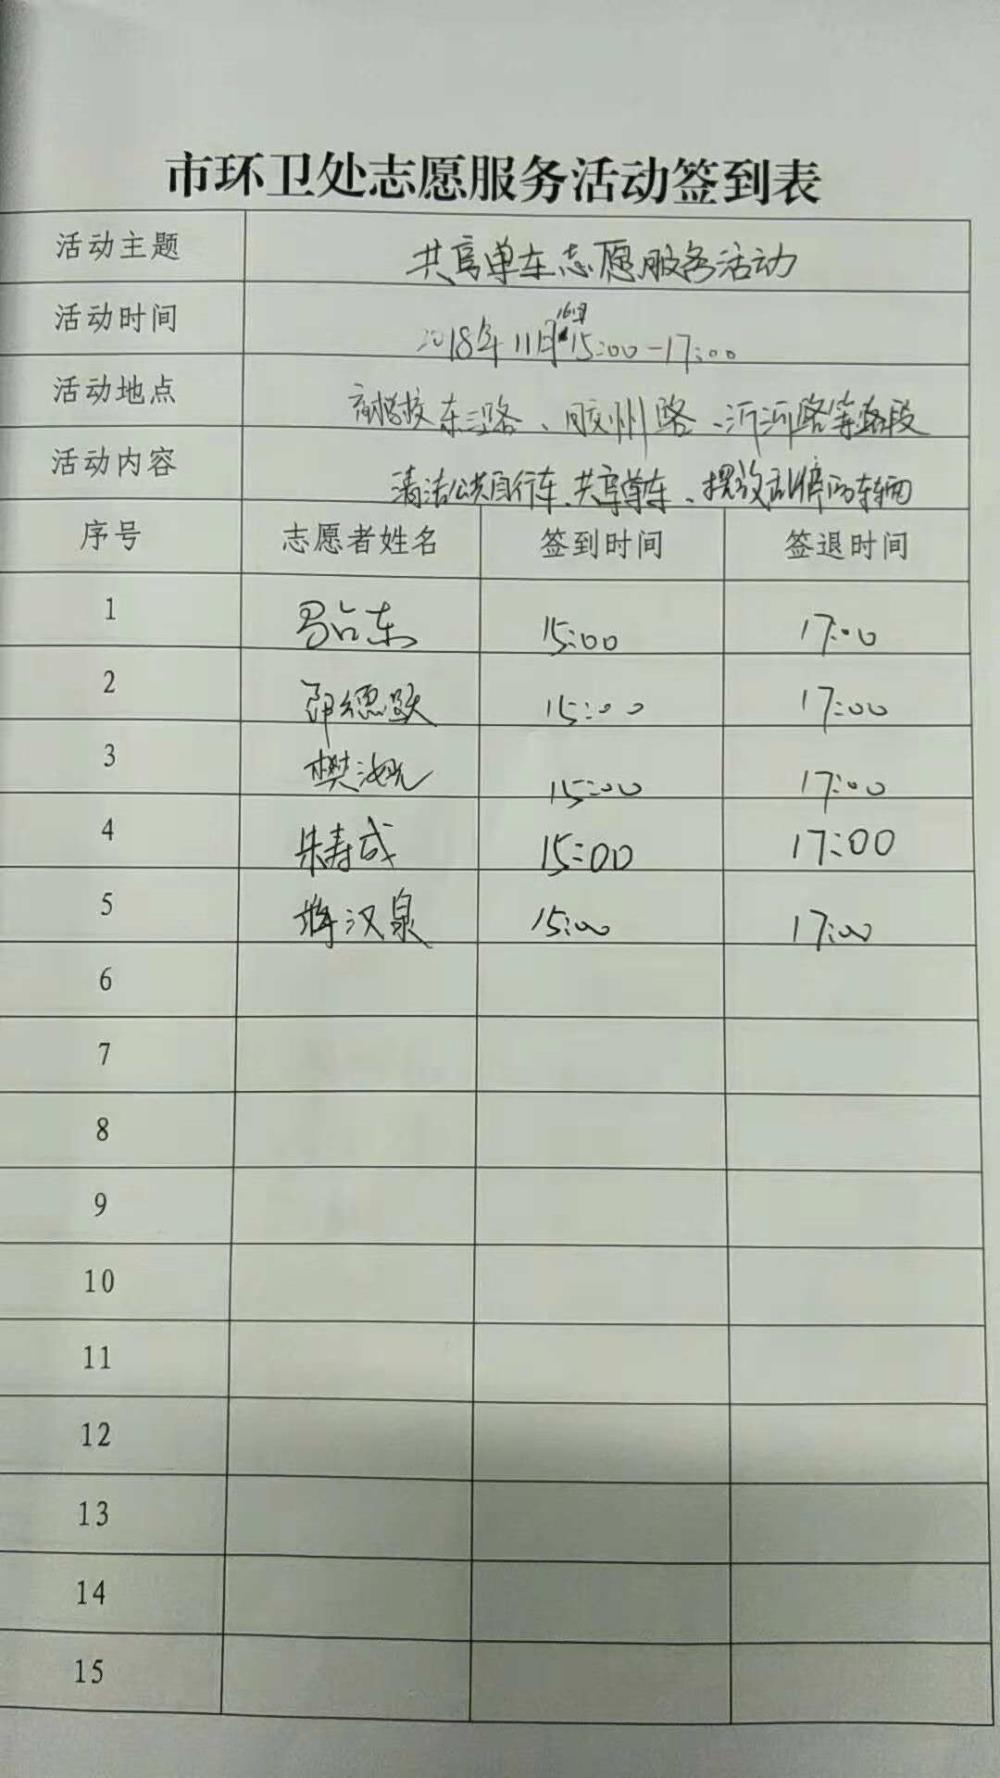 市环卫处志愿服务活动签到表
活动主题 共享单车志愿服务活动
活动时间 2018年11月16日15:00-17:00
活动地点 东三路、胶州路、沂河路等路段
活动内容 清洁公共自行车、共享单车、摆放乱停的车辆
序号 志愿者姓名 签到时间 签退时间
1 15:00 17:00
2 邵德跃 15:00 17:00
3 樊 15:00 17:00
4 朱寿成 15:00 17:00
5 蒋汉泉 15:00 17:00
6
7
8
9
10
11
12
13
14
15